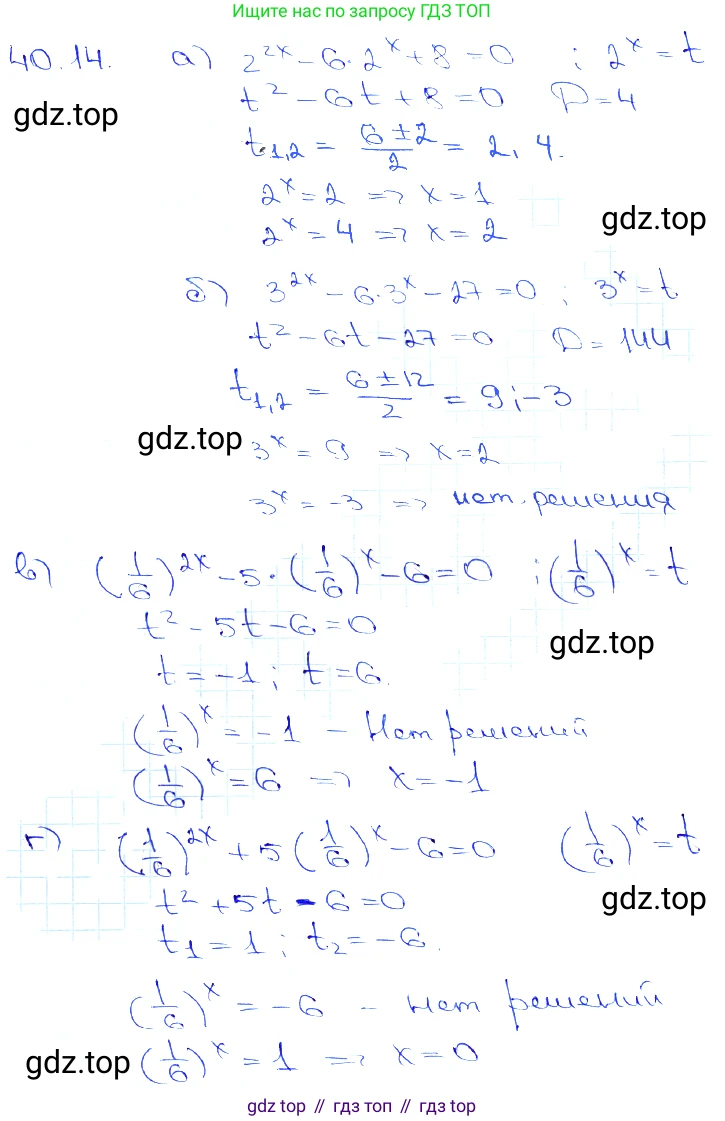 Ищите нас по запросу ГДЗ ТОП
40.14. а) 2^{2x} - 6·2^x + 8 = 0 ; 2^x = t
gdz.top
t² - 6t + 8 = 0 D = 4
t_{1,2} = (6 ± 2)/2 = 2, 4.
2^x = 2 => x = 1
gdz.top
2^x = 4 => x = 2
б) 3^{2x} - 6·3^x - 27 = 0 ; 3^x = t
t² - 6t - 27 = 0 D = 144
t_{1,2} = (6 ± 12)/2 = 9; -3
gdz.top
3^x = 9 => x = 2
3^x = -3 => нет решения
в) (1/6)^{2x} - 5·(1/6)^x - 6 = 0 ; (1/6)^x = t
t² - 5t - 6 = 0
gdz.top
t = -1; t = 6.
(1/6)^x = -1 - нет решений
gdz.top
(1/6)^x = 6 => x = -1
г) (1/6)^{2x} + 5(1/6)^x - 6 = 0 (1/6)^x = t
t² + 5t - 6 = 0
gdz.top
t_1 = 1; t_2 = -6.
(1/6)^x = -6 - нет решений
gdz.top
(1/6)^x = 1 => x = 0
gdz top // гдз топ // gdz top